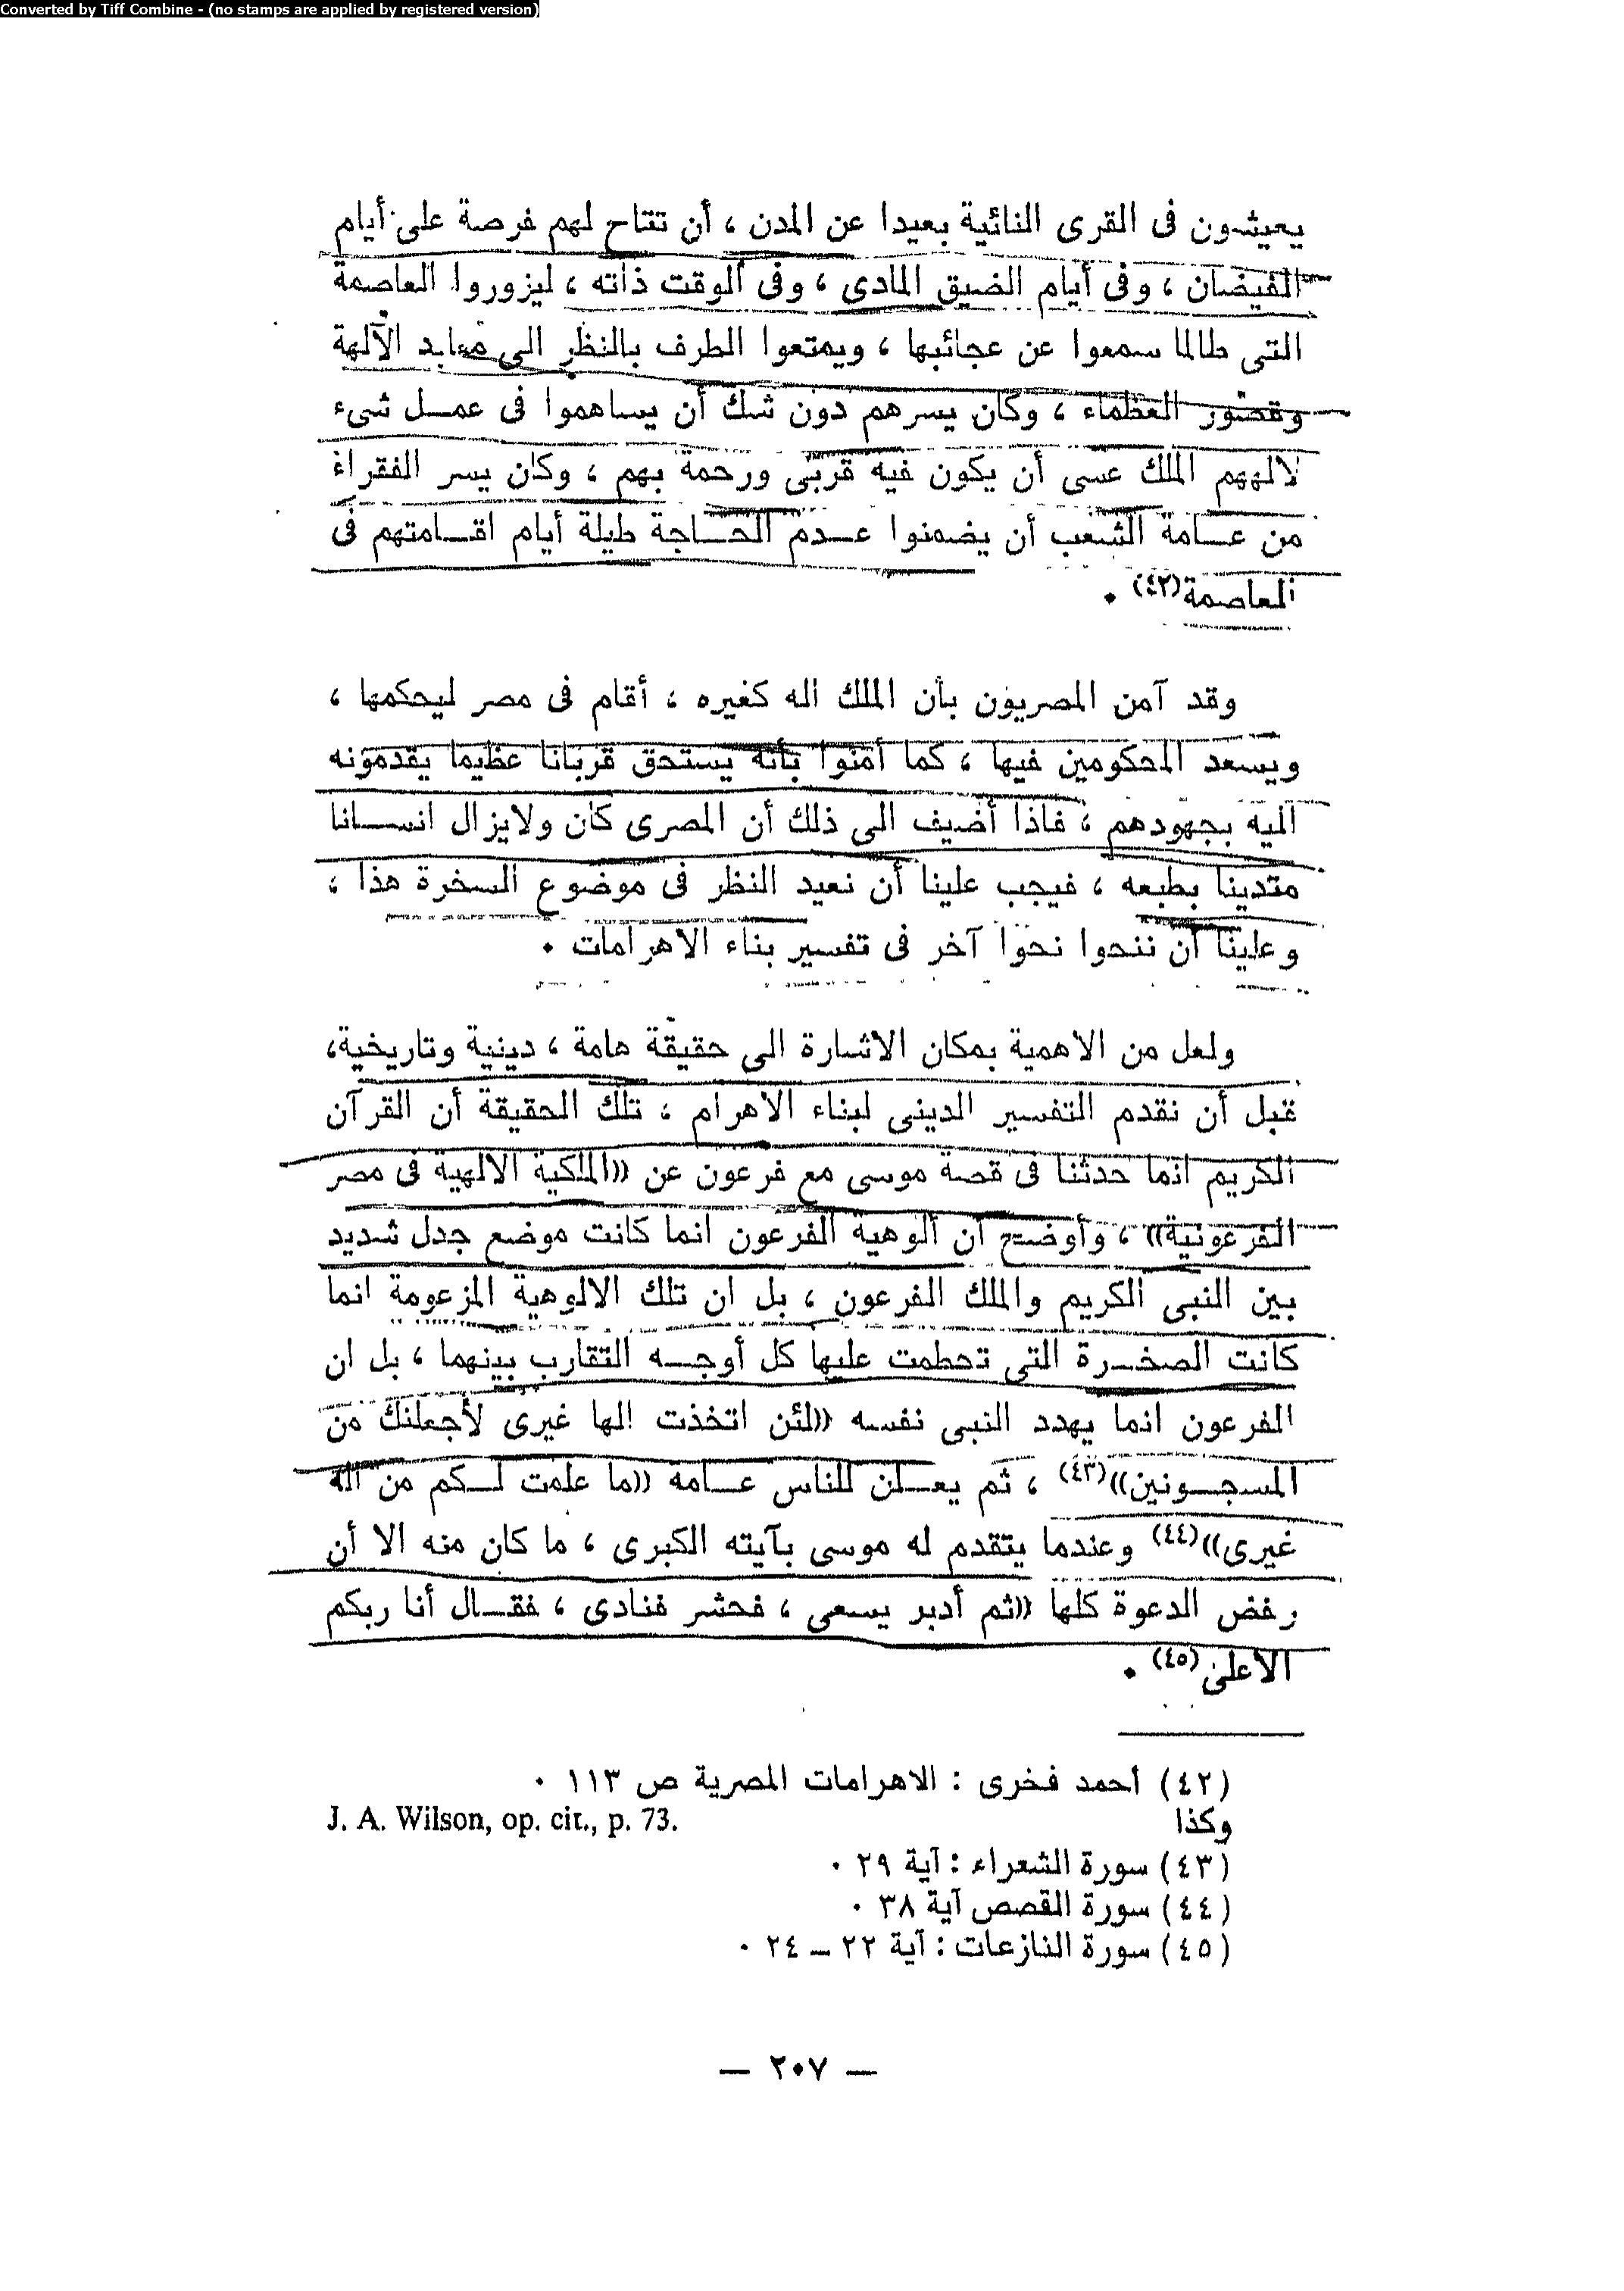 Converted by Tiff Combine - (no stamps are applied by registered version)
يعيشون فى القرى النائية بعيدا عن المدن ، أن تتاح لهم فرصة على أيام
الفيضان ، وفى أيام الضيق المادى ، وفى الوقت ذاته ، ليزوروا العاصمة
التى طالما سمعوا عن عجائبها ، ويمتعوا الطرف بالنظر الى معابد الآلهة
وقصور العظماء ، وكان يسرهم دون شك أن يساهموا فى عمل شىء
لالههم الملك عسى أن يكون فيه قربى ورحمة بهم ، وكان يسر الفقراء
من عامة الشعب أن يضمنوا عدم الحاجة طيلة أيام اقامتهم فى
العاصمة(٤٢) ٠
وقد آمن المصريون بأن الملك اله كغيره ، أقام فى مصر ليحكمها ،
ويسعد المحكومين فيها ، كما أمنوا بأنه يستحق قربانا عظيما يقدمونه
اليه بجهودهم ، فاذا أضيف الى ذلك أن المصرى كان ولايزال انسانا
متدينا بطبعه ، فيجب علينا أن نعيد النظر فى موضوع السخرة هذا ،
وعلينا أن ننحوا نحوا آخر فى تفسير بناء الاهرامات ٠
ولعل من الاهمية بمكان الاشارة الى حقيقة هامة ، دينية وتاريخية،
قبل أن نقدم التفسير الدينى لبناء الاهرام ، تلك الحقيقة أن القرآن
الكريم انما حدثنا فى قصة موسى مع فرعون عن «الملكية الالهية فى مصر
الفرعونية» ، وأوضح أن الوهية الفرعون انما كانت موضع جدل شديد
بين النبى الكريم والملك الفرعون ، بل ان تلك الالوهية المزعومة انما
كانت الصخرة التى تحطمت عليها كل أوجه التقارب بينهما ، بل ان
الفرعون انما يهدد النبى نفسه «لئن اتخذت الها غيرى لأجعلنك من
المسجونين»(٤٣) ، ثم يعلن للناس عامة «ما علمت لكم من اله
غيرى»(٤٤) وعندما يتقدم له موسى بآيته الكبرى ، ما كان منه الا أن
رفض الدعوة كلها «ثم أدبر يسعى ، فحشر فنادى ، فقال أنا ربكم
الاعلى(٤٥) ٠
(٤٢) أحمد فخرى : الاهرامات المصرية ص ١١٣ ٠
وكذا J. A. Wilson, op. cit., p. 73.
(٤٣) سورة الشعراء : آية ٢٩ ٠
(٤٤) سورة القصص آية ٣٨ ٠
(٤٥) سورة النازعات : آية ٢٢ – ٢٤ ٠
— ٢٠٧ —